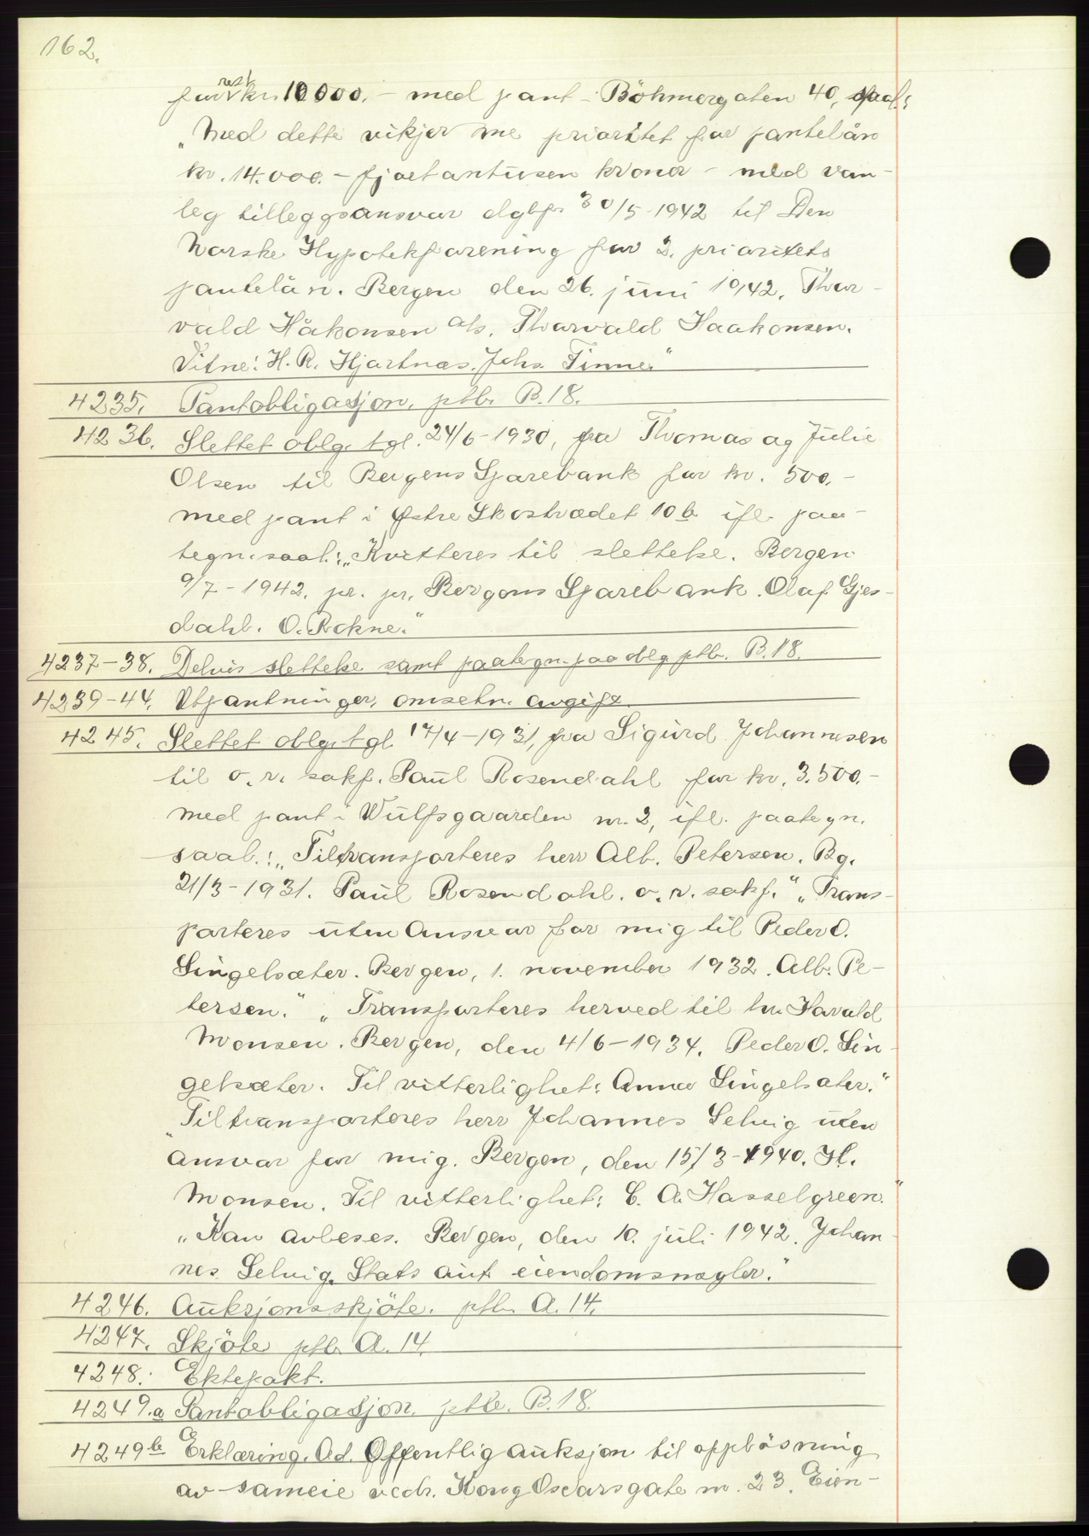 162.
for rest kr. 10000.- med pant i Böhmergaten 40, saal.:
"Med dette vikjer me prioritet for pantelån
kr. 14.000.- fjortantusen kroner - med van-
leg tilleggsansvar dgbf. 30/5-1942 til Den
Norske Hypotekforening for 2. prioritets
pantelån. Bergen den 26. juni 1942. Thor-
vald Håkonsen a/s. Thorvald Haakonsen.
Vitne: H. R. Hjartnæs. Johs. Tinne."
4235. Pantobligasjon. ptb. B.18.
4236. Slettet oblg. tgl. 24/6-1930, fra Thomas og Julie
Olsen til Bergens Sparebank for kr. 500.-
med pant i Østre Skostrædet 10b ifl. paa-
tegn. saal.: "Kvitteres til slettelse. Bergen
9/7-1942. pr. pr. Bergens Sparebank. Olaf Gjes-
dahl. O. Rokne."
4237-38. Delvis slettelse samt paategn. paa oblg. ptb. B.18.
4239-44. Utpantninger, omsetn. avgift.
4245. Slettet oblg. tgl. 17/4-1931, fra Sigurd Johannesen
til o. r. sakf. Paul Rosendahl for kr. 3.500.-
med pant i Wulfsgaarden nr. 2, ifl. paategn.
saal.: "Tiltransporteres herr Alb. Petersen. Bg.
21/3-1931. Paul Rosendahl. o. r. sakf." "Trans-
porteres uten Ansvar for mig til Peder O.
Singelsæter. Bergen, 1. november 1932. Alb. Pe-
tersen." "Transporteres herved til hr. Harald
Monsen. Bergen, den 4/6-1934. Peder O. Sin-
gelsæter. Til vitterlighet: Anna Singelsæter."
"Tiltransporteres herr Johannes Selvig uten
ansvar for mig. Bergen, den 15/3-1940. H.
Monsen. Til vitterlighet: C. A. Hasselgreen."
"Kan avleses. Bergen, den 10. juli 1942. Johan-
nes Selvig. Stats aut eiendomsmegler."
4246. Auksjonsskjöte. ptb. A.14.
4247. Skjöte ptb. A.14.
4248. Ektepakt.
4249.a Pantobligasjon. ptb. B.18.
4249b Erklæring. Ad. Offentlig auksjon til opplösning
av sameie vedr. Kong Oscarsgate nr. 23. Eien-